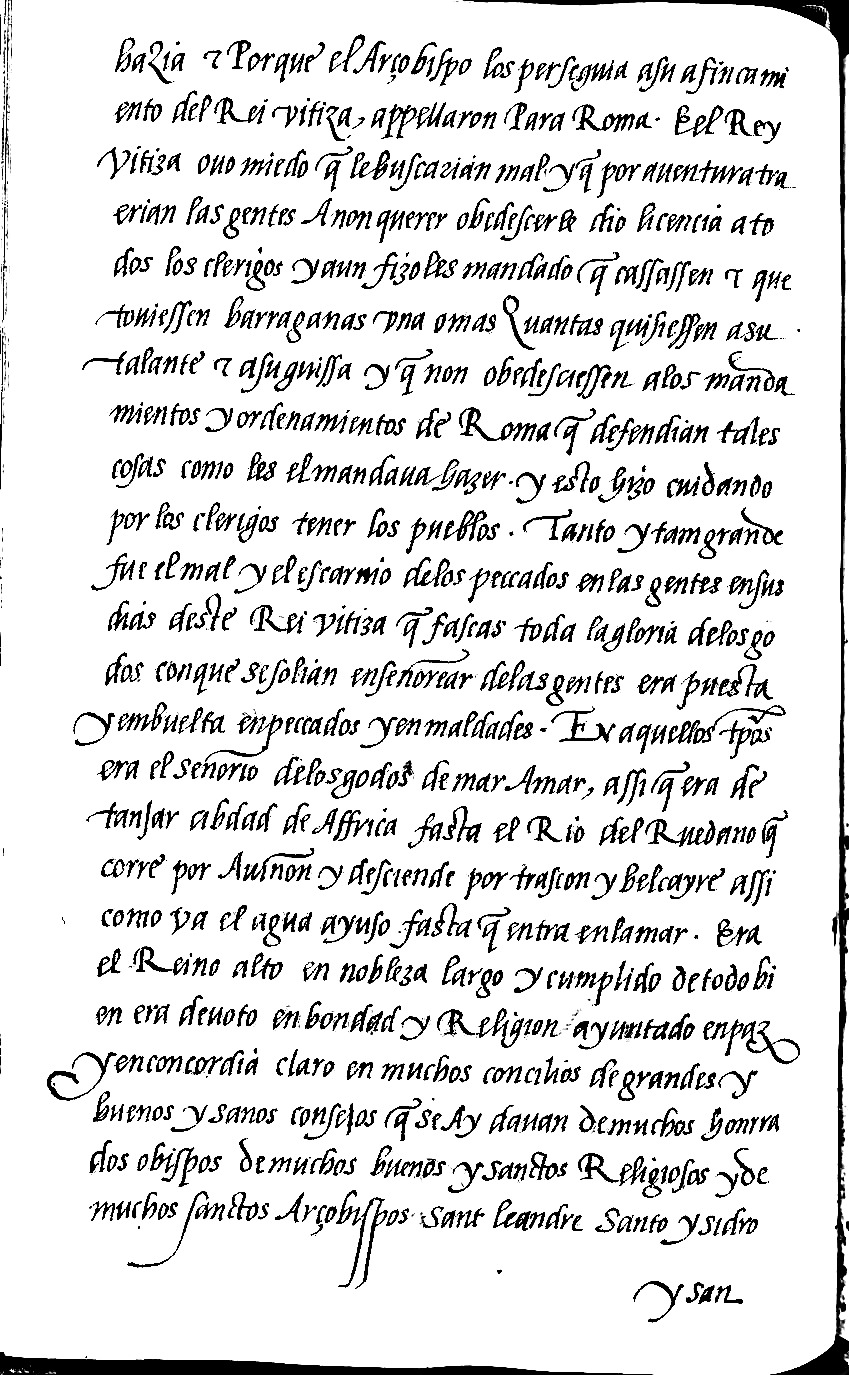 hazia ⁊ Porque el Arçobispo los perseguia asu afincami
ento del Rei vitiza, appellaron Para Roma. Eel Rey
Vitiza ouo miedo q̃ le buscarian mal y q̃ por auentura tra
erian las gentes A non querer obedescerle dio licencia a to
dos los clerigos y aun fizoles mandado q̃ cassassen ⁊ que
touiessen barraganas vna o mas Quantas quisiessen a su
talante ⁊ a su guissa y q̃ non obedesciessen a los manda
mientos y ordenamientos de Roma q̃ defendian tales
cosas como les el mandaua hazer. y esto hizo cuidando
por los clerigos tener los pueblos. Tanto y tam grande
fue el mal y el escarnio delos peccados en las gentes en sus
dias deste Rei vitiza q̃ fascas toda la gloria delos go
dos con que se solian enseñorear delas gentes era puesta
y embuelta en peccados y en maldades. En aquellos tp̃os
era el señorio delos godos de mar Amar, assi q̃ era de
tanjar cibdad de Affrica fasta el Rio del Ruedano q̃
corre por Auiñon y desciende por trascon y belcayre assi
como va el agua ayuso fasta q̃ entra en la mar. Era
el Reino alto en nobleza largo y cumplido de todo bi
en era deuoto en bondad y Religion ayuntado en paz
y en concordia claro en muchos concilios de grandes y
buenos y sanos consejos q̃ se Ay dauan de muchos honrra
dos obispos de muchos buenos y sanctos Religiosos y de
muchos sanctos Arçobispos sant leandre santo ysidro
y san